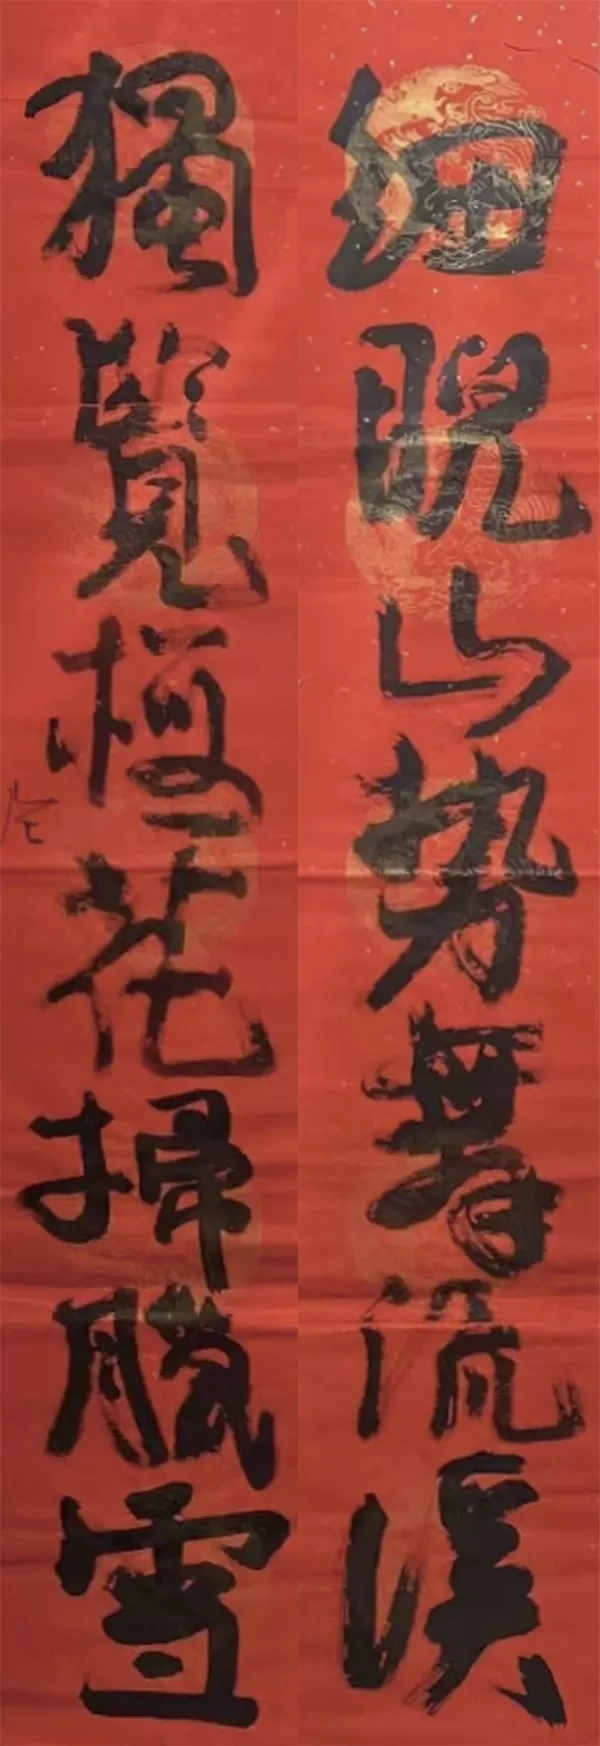 獨覽梅花掃臘雪
細睨山勢舞流溪